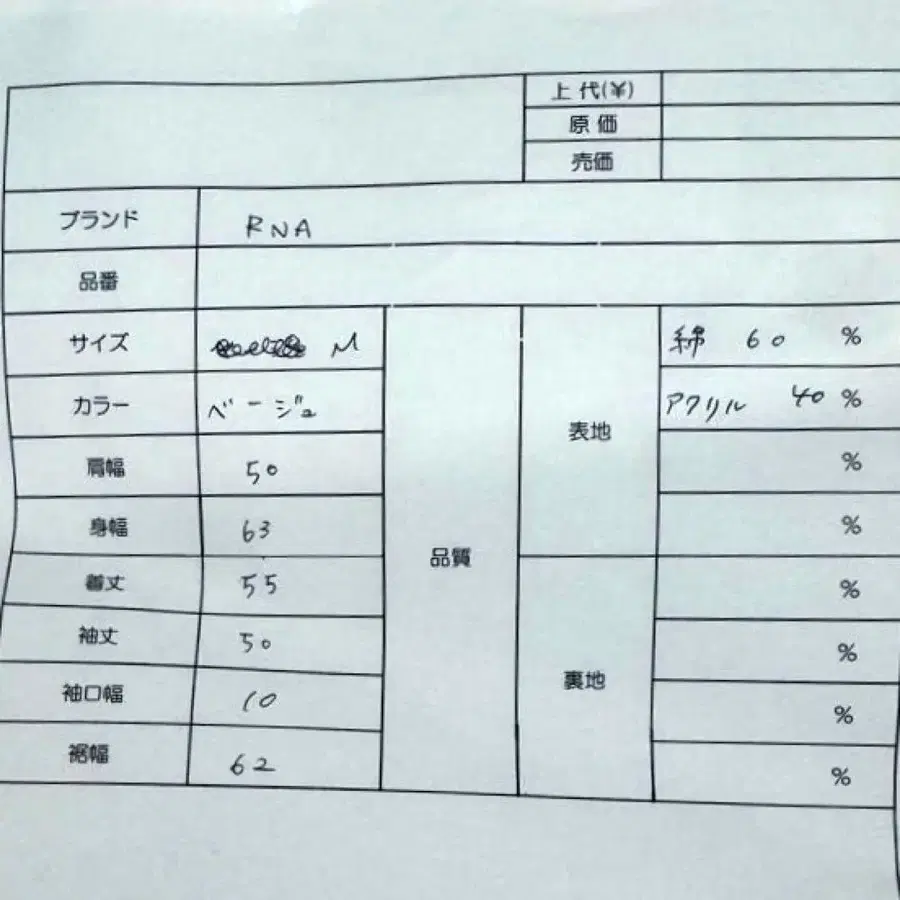 上代(¥)
原価
売価
ブランド RNA
品番
サイズ M 綿 60 %
カラー ベージュ アクリル 40 %
表地
肩幅 50 %
身幅 63 %
品質
着丈 55 %
袖丈 50 %
裏地
袖口幅 10 %
裾幅 62 %